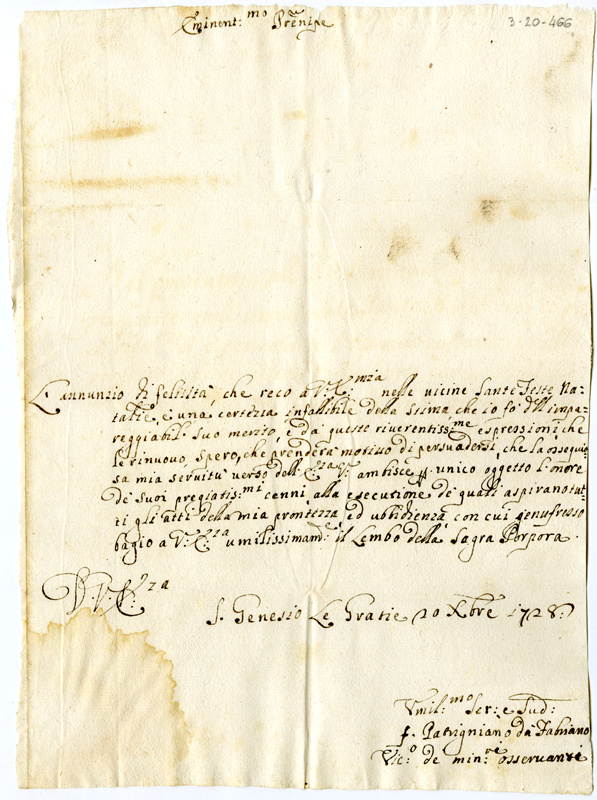 3-20-466
Eminent:mo Prenpe
L'annunzio di felicità, che reco a V: E:mza nelle vicine Sante Feste Na-
talie, è una certezza infallibile della stima che io fo' dell'impa-
reggiabil suo merito, e da queste riverentissime espressioni, che
le rinuovo, spero, che prenderà motivo di persuadersi, che la ossequio-
sa mia servitù verso dell'E:za V: ambisce p unico oggetto l'onore
de' suoi pregiatiss:mi cenni, alla esecutione de' quali aspirano tut-
ti gli atti della mia prontezza, ed ubbidienza, con cui genuflesso
bagio a V: E:za umilissimamte il Lembo della Sagra Porpora.
D: V: E:za
S. Genesio Le Gratie 20 Xbre 1728:
Vmil:mo Ser: e Sud:
f. Patrigniano da Fabriano
Vic:o de min:ri osservanti